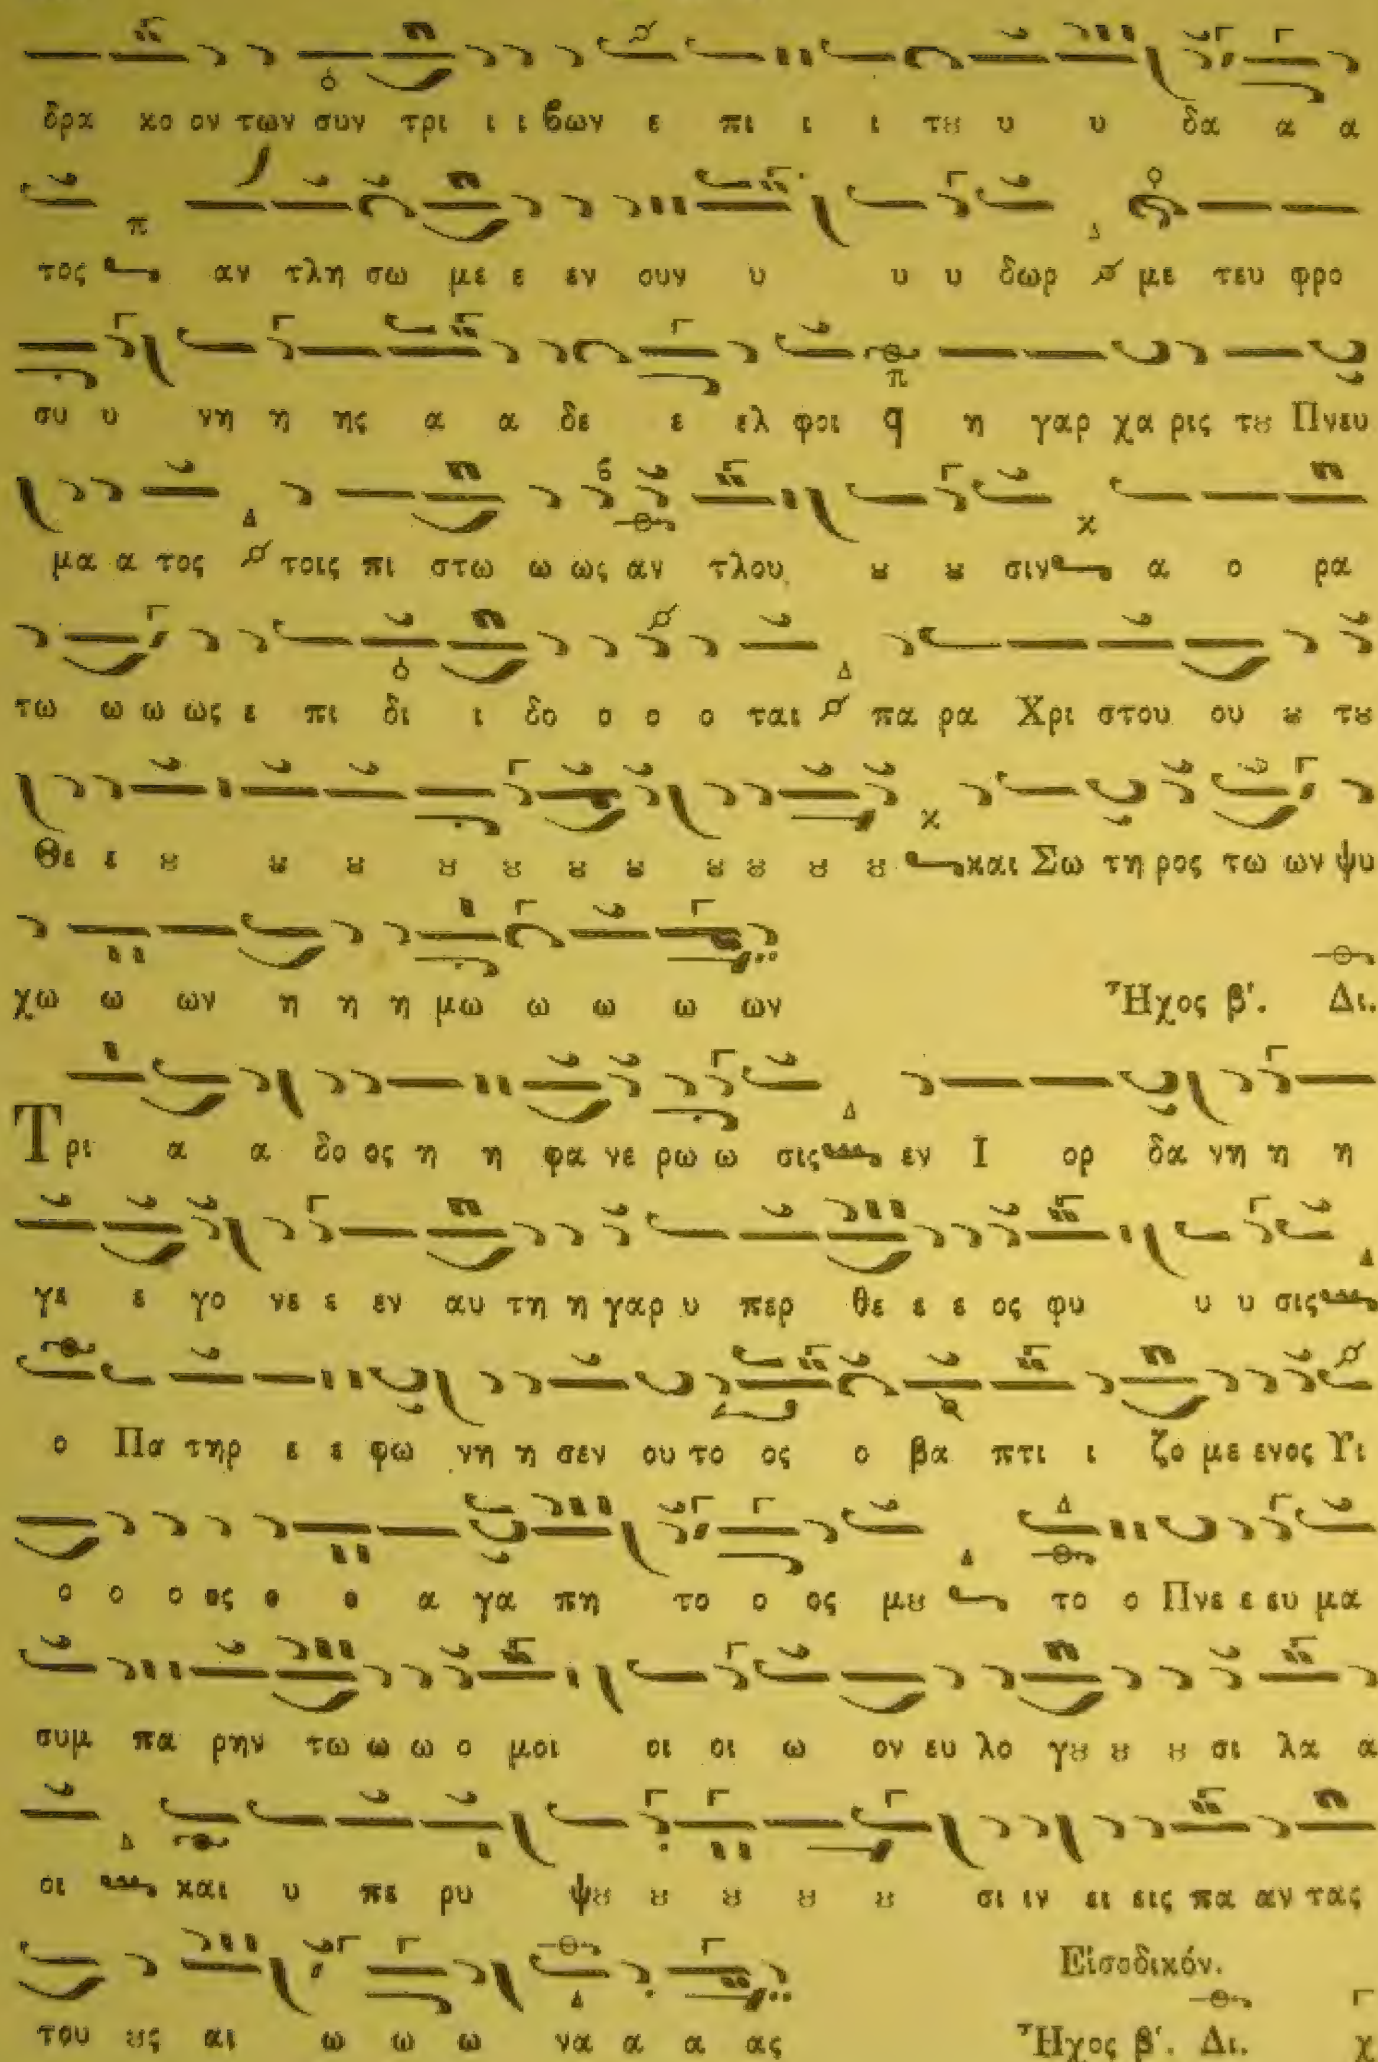 δρα κο ον των συν τρι ι ι βων ε πι ι ι ι τȣ υ υ υ δα α α
π
τος αν τλη σω με ε εν ουν υ υ υ δωρ με τευ φρο
Δ
συ υ νη η ης α α δε ε ελ φοι q η γαρ χα ρις τȣ Πνευ
π
μα α τος τοις πι στω ω ως αν τλου ȣ ȣ σιν α ο ρα
Δ κ
τω ω ω ως ε πι δι ι δο ο ο ο ται πα ρα Χρι στου ου ȣ τȣ
Δ
Θε ε ȣ ȣ ȣ ȣ ȣ ȣ ȣ ȣ ȣ ȣ ȣ και Σω τη ρος τω ων ψυ
κ
χω ω ων η η η μω ω ω ω ων Ἦχος β΄. Δι.
Τρι α α δο ος η η φα νε ρω ω σις εν Ι ορ δα νη η η
Δ
γε ε γο νε ε εν αυ τη η γαρ υ περ θε ε ε ος φυ υ υ σις
Δ
ο Πα τηρ ε ε φω νη η σεν ου το ος ο βα πτι ι ζο με ενος Υι
ο ο ο ος ο ο α γα πη το ο ος μȣ το ο Πνε ε ευ μα
Δ Δ
συμ πα ρην τω ω ω ο μοι οι οι ω ον ευ λο γȣ ȣ ȣ σι λα α
οι και υ πε ρυ ψȣ ȣ ȣ ȣ ȣ σι ιν ει εις πα αν τας
Δ
Εἰσοδικόν.
Δ
του ȣς αι ω ω ω να α α ας Ἦχος β΄. Δι. χ